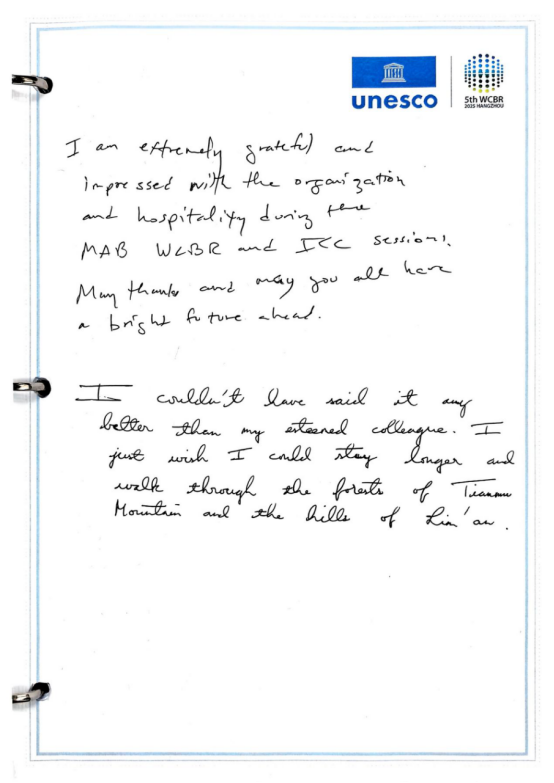 unesco
5th WCBR
2025 HANGZHOU
I am extremely grateful and
impressed with the organization
and hospitality during the
MAB WCBR and ICC sessions.
Many thanks and may you all have
a bright future ahead.
I couldn't have said it any
better than my esteemed colleague. I
just wish I could stay longer and
walk through the forests of Tianmu
Mountain and the hills of Lin'an.